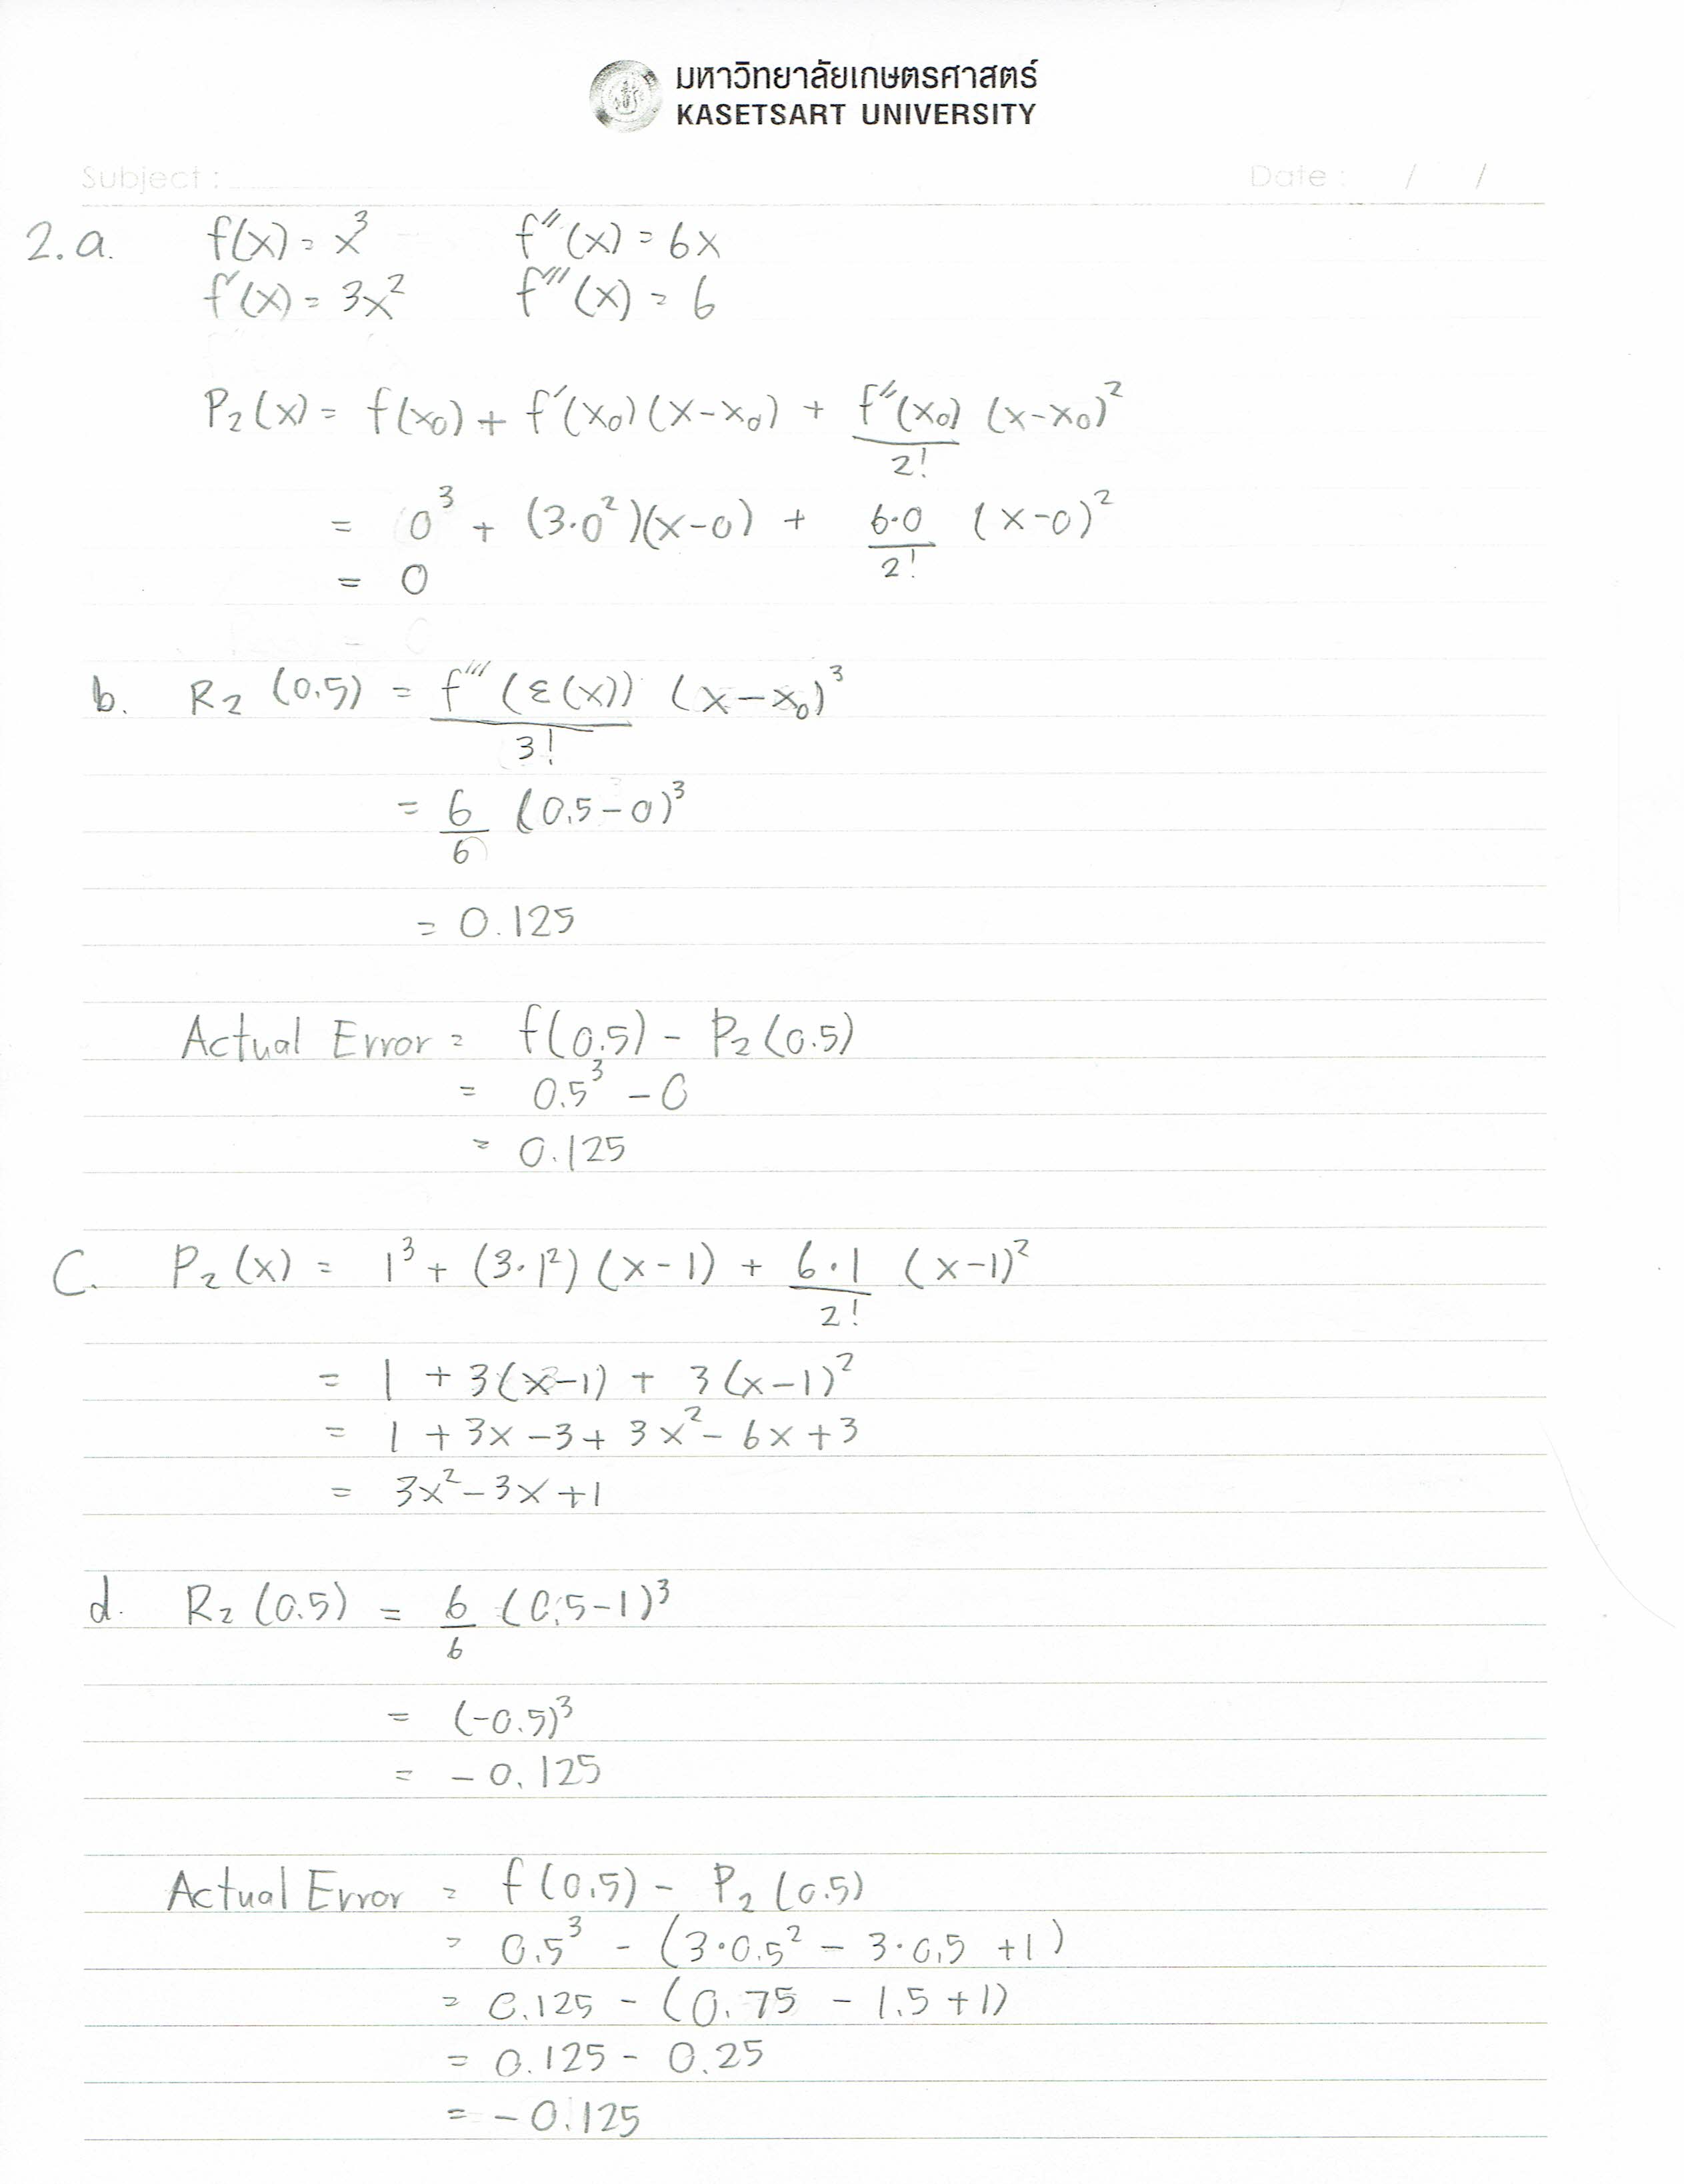 มหาวิทยาลัยเกษตรศาสตร์
KASETSART UNIVERSITY
Subject : Date : / /
2.a. f(x) = x³ f″(x) = 6x
f′(x) = 3x² f‴(x) = 6
P₂(x) = f(x₀) + f′(x₀)(x-x₀) + f″(x₀)/2! (x-x₀)²
= 0³ + (3·0²)(x-0) + 6·0/2! (x-0)²
= 0
b. R₂ (0.5) = f‴(ε(x))/3! (x-x₀)³
= 6/6 (0.5-0)³
= 0.125
Actual Error = f(0.5) - P₂(0.5)
= 0.5³ - 0
= 0.125
C. P₂(x) = 1³ + (3·1²)(x-1) + 6·1/2! (x-1)²
= 1 + 3(x-1) + 3(x-1)²
= 1 + 3x - 3 + 3x² - 6x + 3
= 3x² - 3x + 1
d. R₂(0.5) = 6/6 (0.5-1)³
= (-0.5)³
= -0.125
Actual Error = f(0.5) - P₂(0.5)
= 0.5³ - (3·0.5² - 3·0.5 + 1)
= 0.125 - (0.75 - 1.5 + 1)
= 0.125 - 0.25
= -0.125